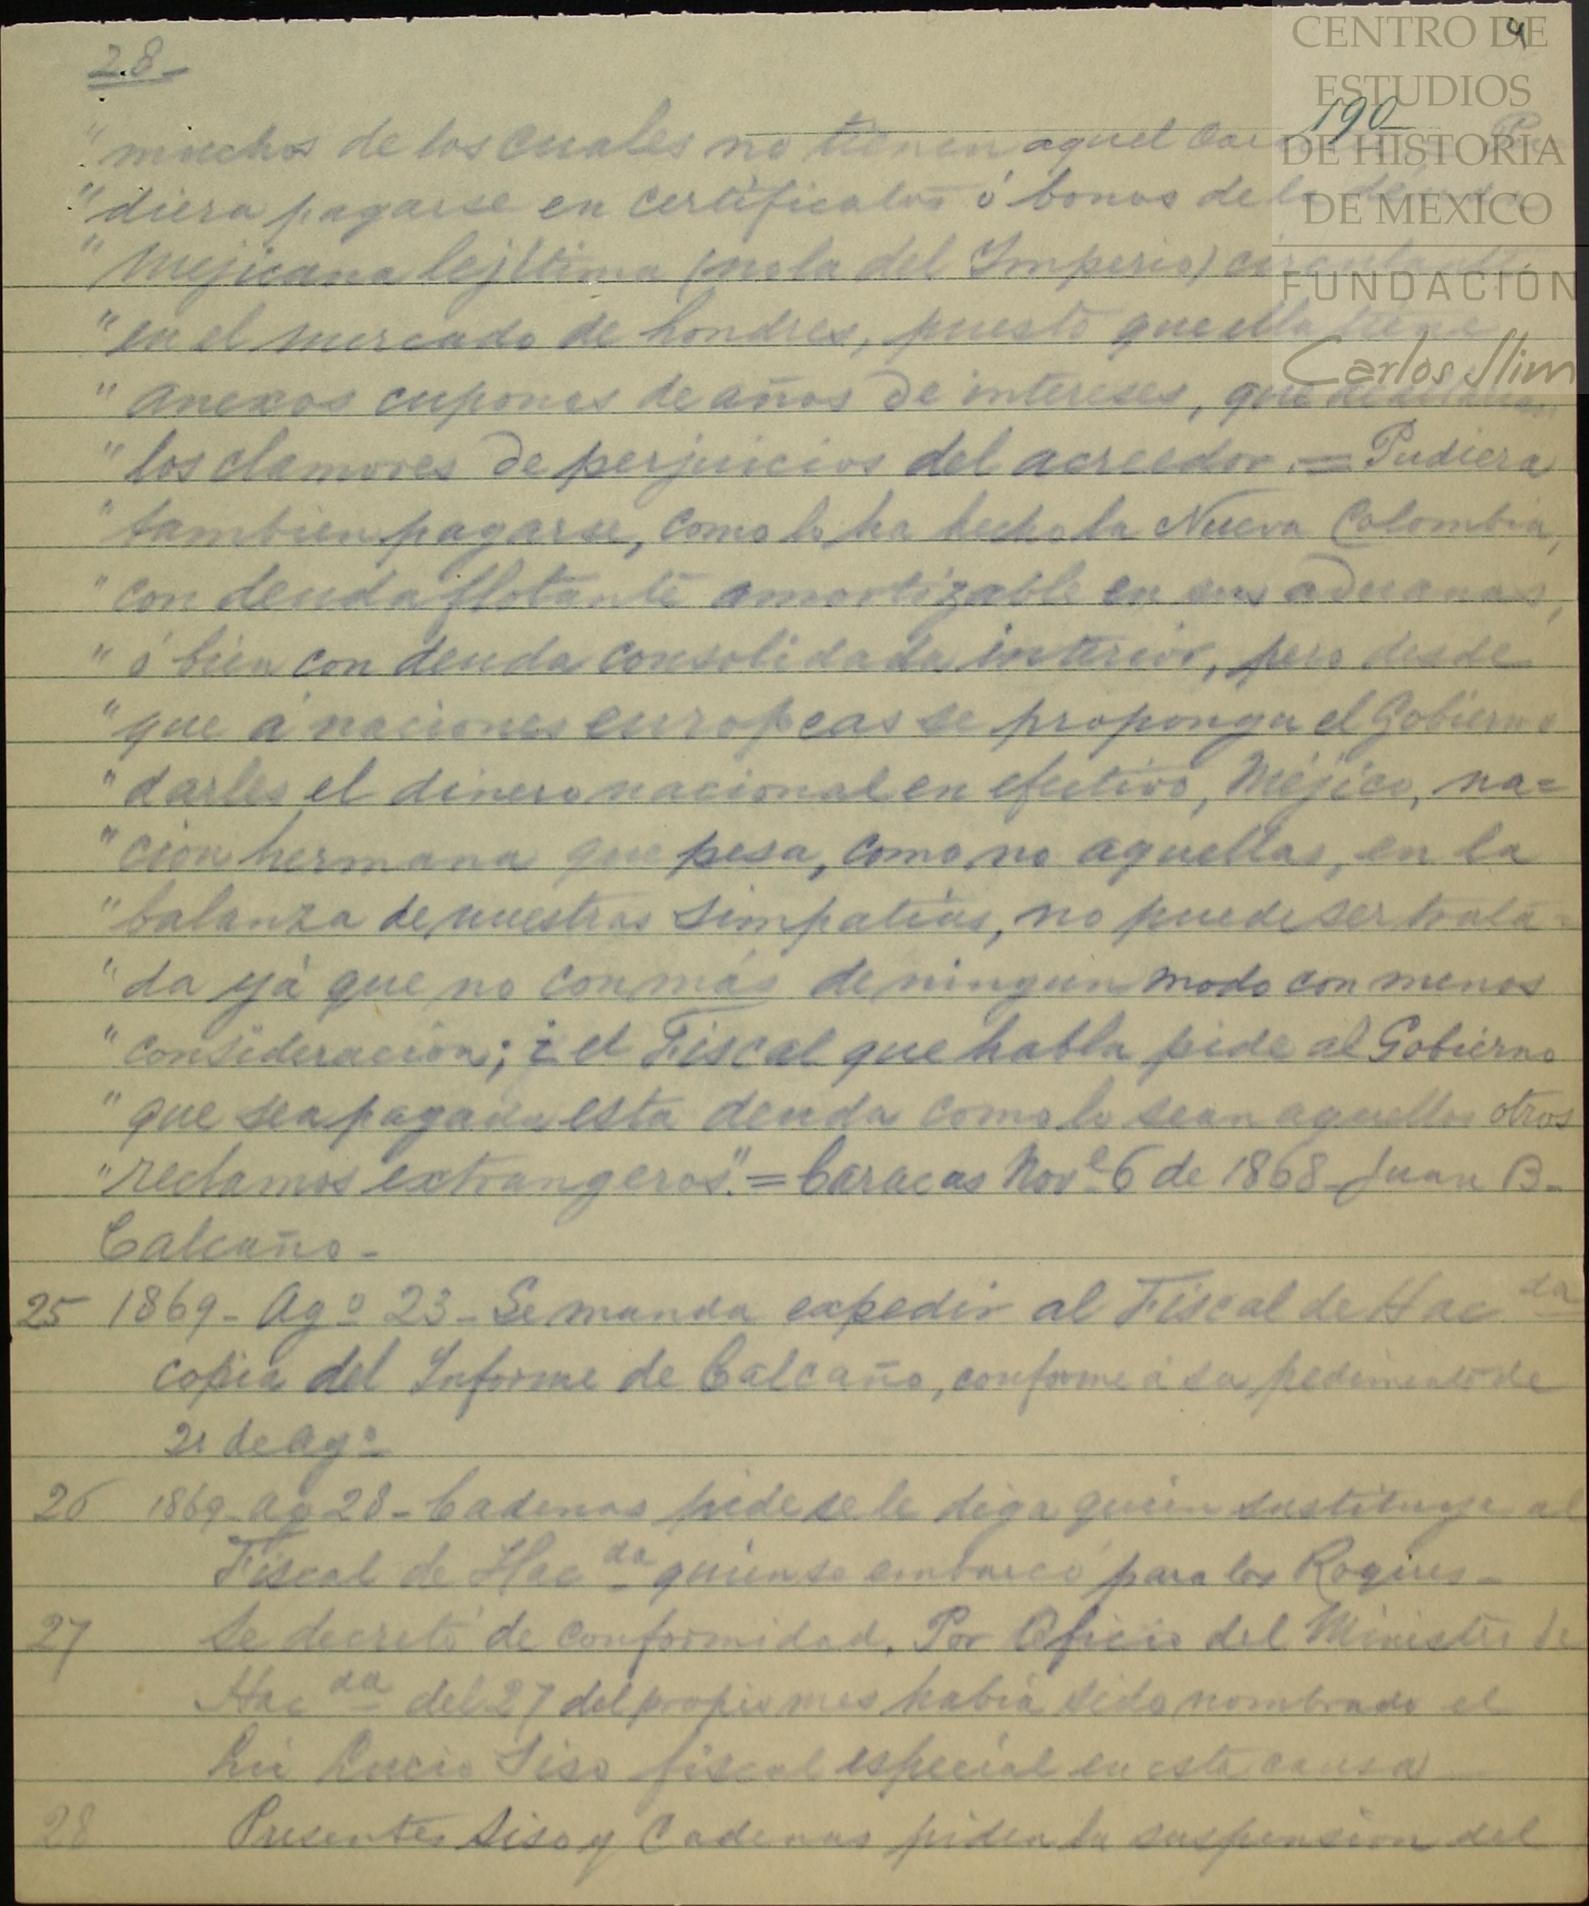 28-
4
190
CENTRO DE
ESTUDIOS
DE HISTORIA
DE MEXICO
FUNDACIÓN
Carlos Slim
" muchos de los cuales no tienen aquel
" diera pagarse en certificatos ó bonos de la deuda
" Mejicana lejítima (no la del Imperio) circulante
" en el mercado de Londres, puesto que ella tiene
" anexos cupones de años de intereses, que
" los clamores de perjuicios del acreedor.= Pudiera
" tambien pagarse, como lo ha hecho la Nueva Colombia,
" con deuda flotante amortizable en sus aduanas,
" ó bien con deuda consolidada interior, pero desde
" que á naciones europeas se proponga el Gobierno
" darles el dinero nacional en efectivo, Méjico, na=
" cion hermana que pesa, como no aquellas, en la
" balanza de nuestras simpatías, no puede ser trata-
" da yá que no con más de ningun modo con menos
" consideracion; i el Fiscal que habla pide al Gobierno
" que sea pagada esta deuda como lo sean aquellos otros
" reclamos extrangeros".= Caracas Nove. 6 de 1868- Juan B-
Calcaño-
25 1869- Ago 23- Se manda expedir al Fiscal de Hacda
copia del Informe de Calcaño, conforme á su pedimento de
21 de Ago
26 1869- Ag 28- Cadenas pide se le diga quien sustituye al
Fiscal de Hacda quien se embarcó para los Roques-
27 Se decretó de conformidad. Por Oficio del Ministro de
Hacda del 27 del propio mes habia sido nombrado el
Lic Lucio Siso fiscal especial en esta causa
28 Presentes Siso y Cadenas piden la suspension del